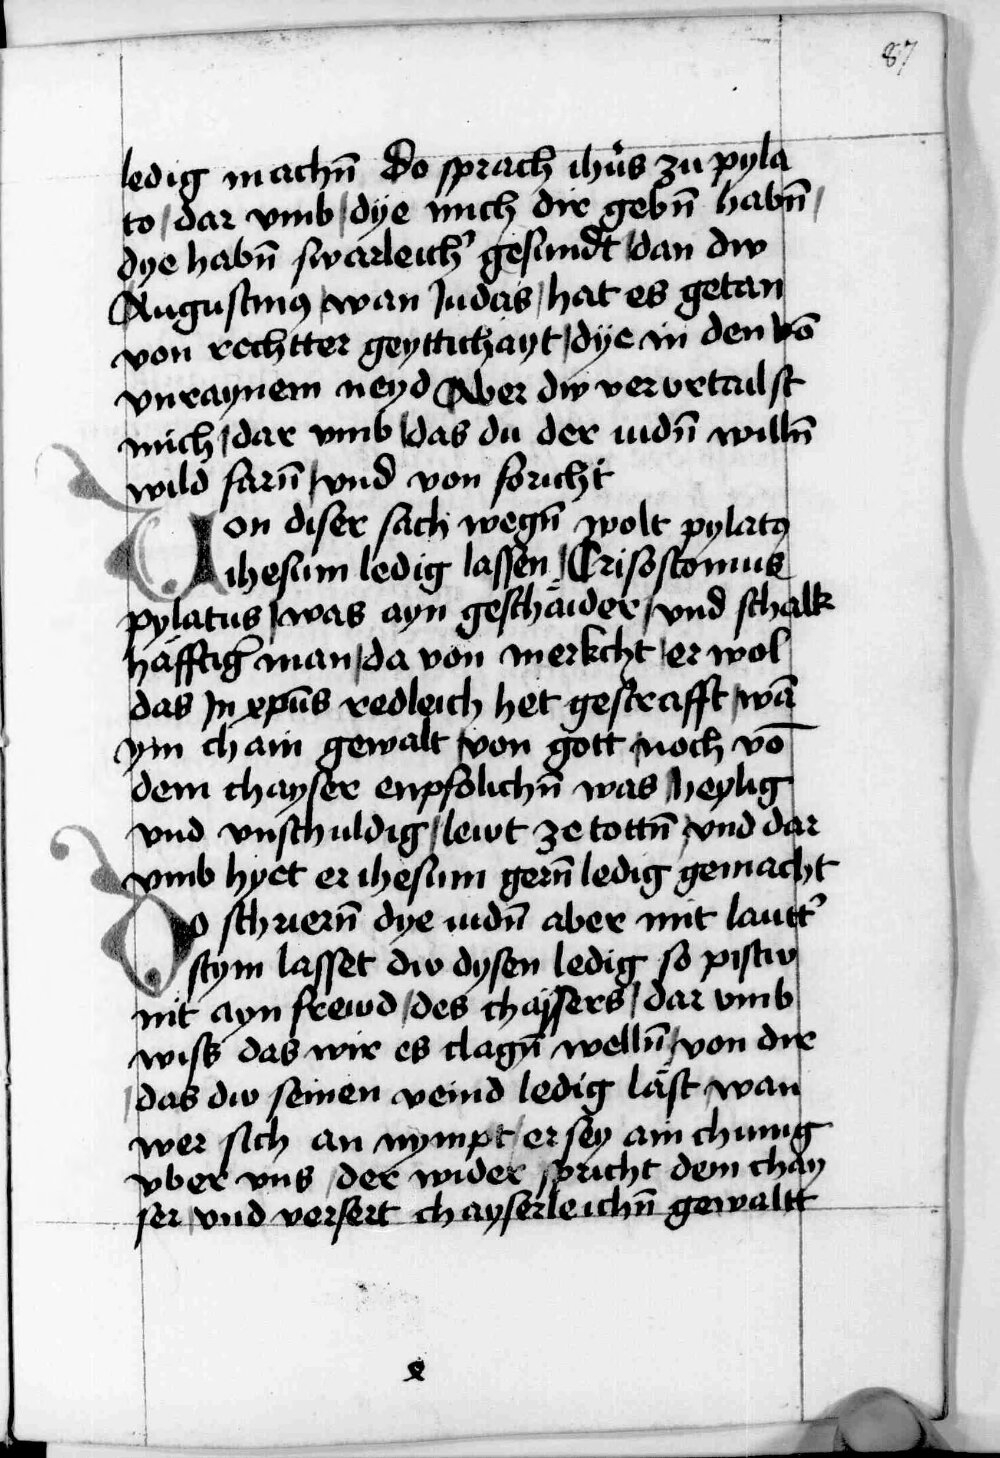 87
ledig machn̄ Do sprach ihūs zu pyla
to / dar vmb / dye mich dir gebn̄ habn̄ /
dye habn̄ swarleich' gesundt / dan dw
Augustinꝰ / wan Judas / hat es getan
von rechtter geyttichayt / dye in den vō
vnraynem neyd Aber dw vervrtailst
mich / dar vmb / das du der iudn̄ willn̄
wild farn̄ / vnd von foricht
Von diser sach wegn̄ wolt pylatꝰ
ihesum ledig lassen / Crisostomus
pylatus / was ayn geschäider / vnd schalk
häfftig man / da von merkcht / er wol
das In xpūs redleich het gestrafft / wā
ym chain gewalt / von gott / noch vō
dem chayser enpfolichn̄ was / heylig
vnd vnschuldig / lewt ze tottn̄ / vnd dar
vmb hyet er ihesum gern̄ ledig gemacht
Do schriern̄ dye iudn̄ aber mit lautt'
stym lasset dw dysen ledig so pistw
nit ayn frewd / des chaysers / dar vmb
wiss das wir es clagn̄ welln̄ / von dir
das dw seinen veind ledig läst wan
wer sich an nympt / er sey ain chunig
vber vns / der wider spricht dem chay
ser / vnd versert chayserleichn̄ gewaltt